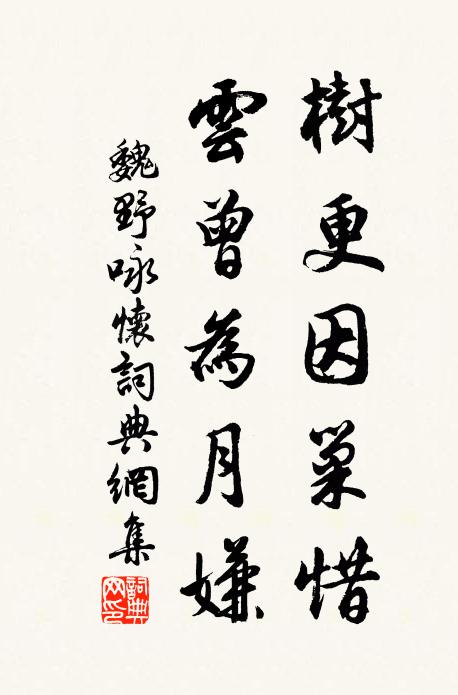 樹更因巢惜
雲曾為月嫌
魏野咏懷詞典網集
詞典
网印